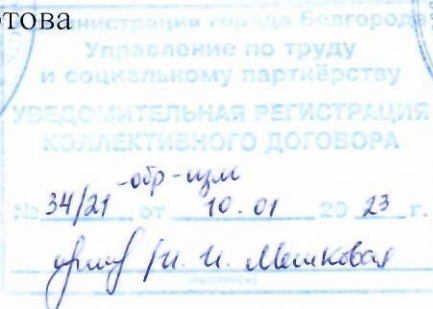 това
Администрация города Белгорода
Управление по труду
и социальному партнёрству
УВЕДОМИТЕЛЬНАЯ РЕГИСТРАЦИЯ
КОЛЛЕКТИВНОГО ДОГОВОРА
№ 34/21 -обр-изм от 10.01 2023 г.
/И. И. Мешковая
(подпись)